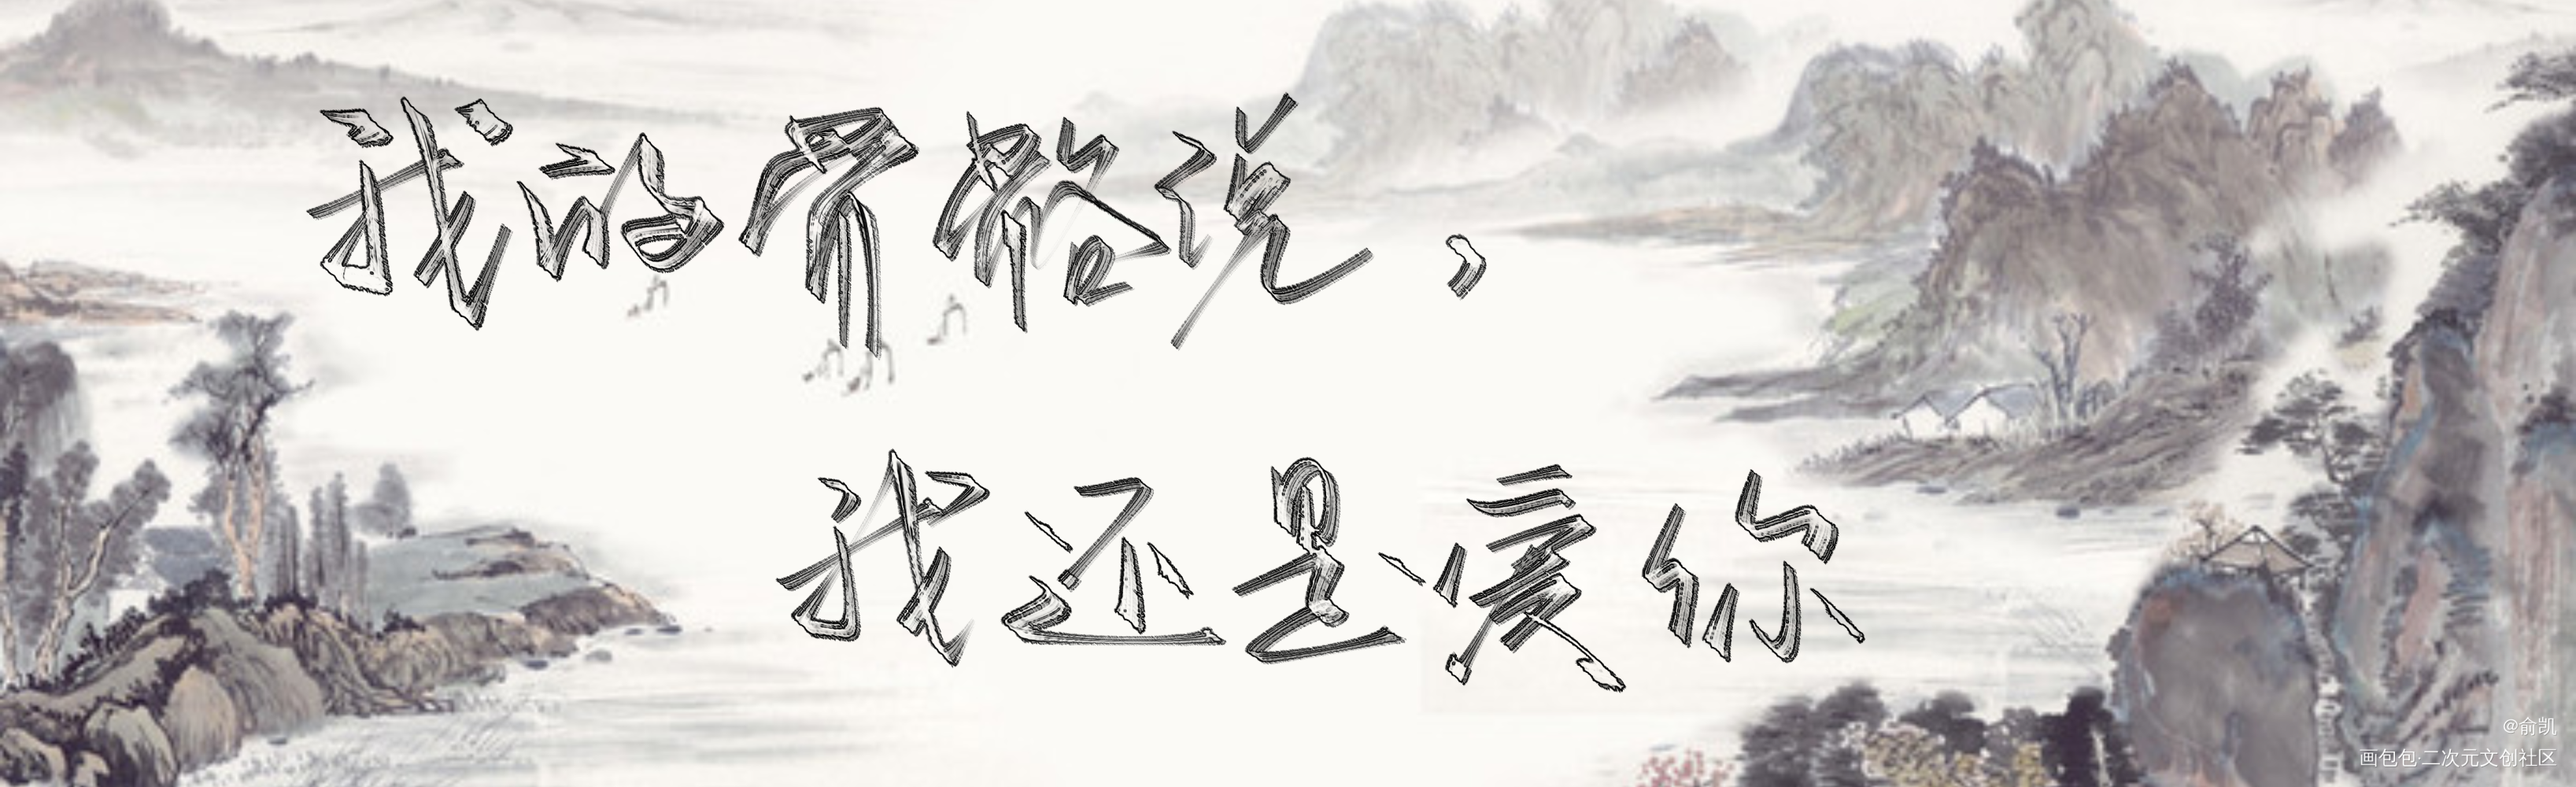 我的骨骼说，
我还是爱你
@俞凯
画包包·二次元文创社区